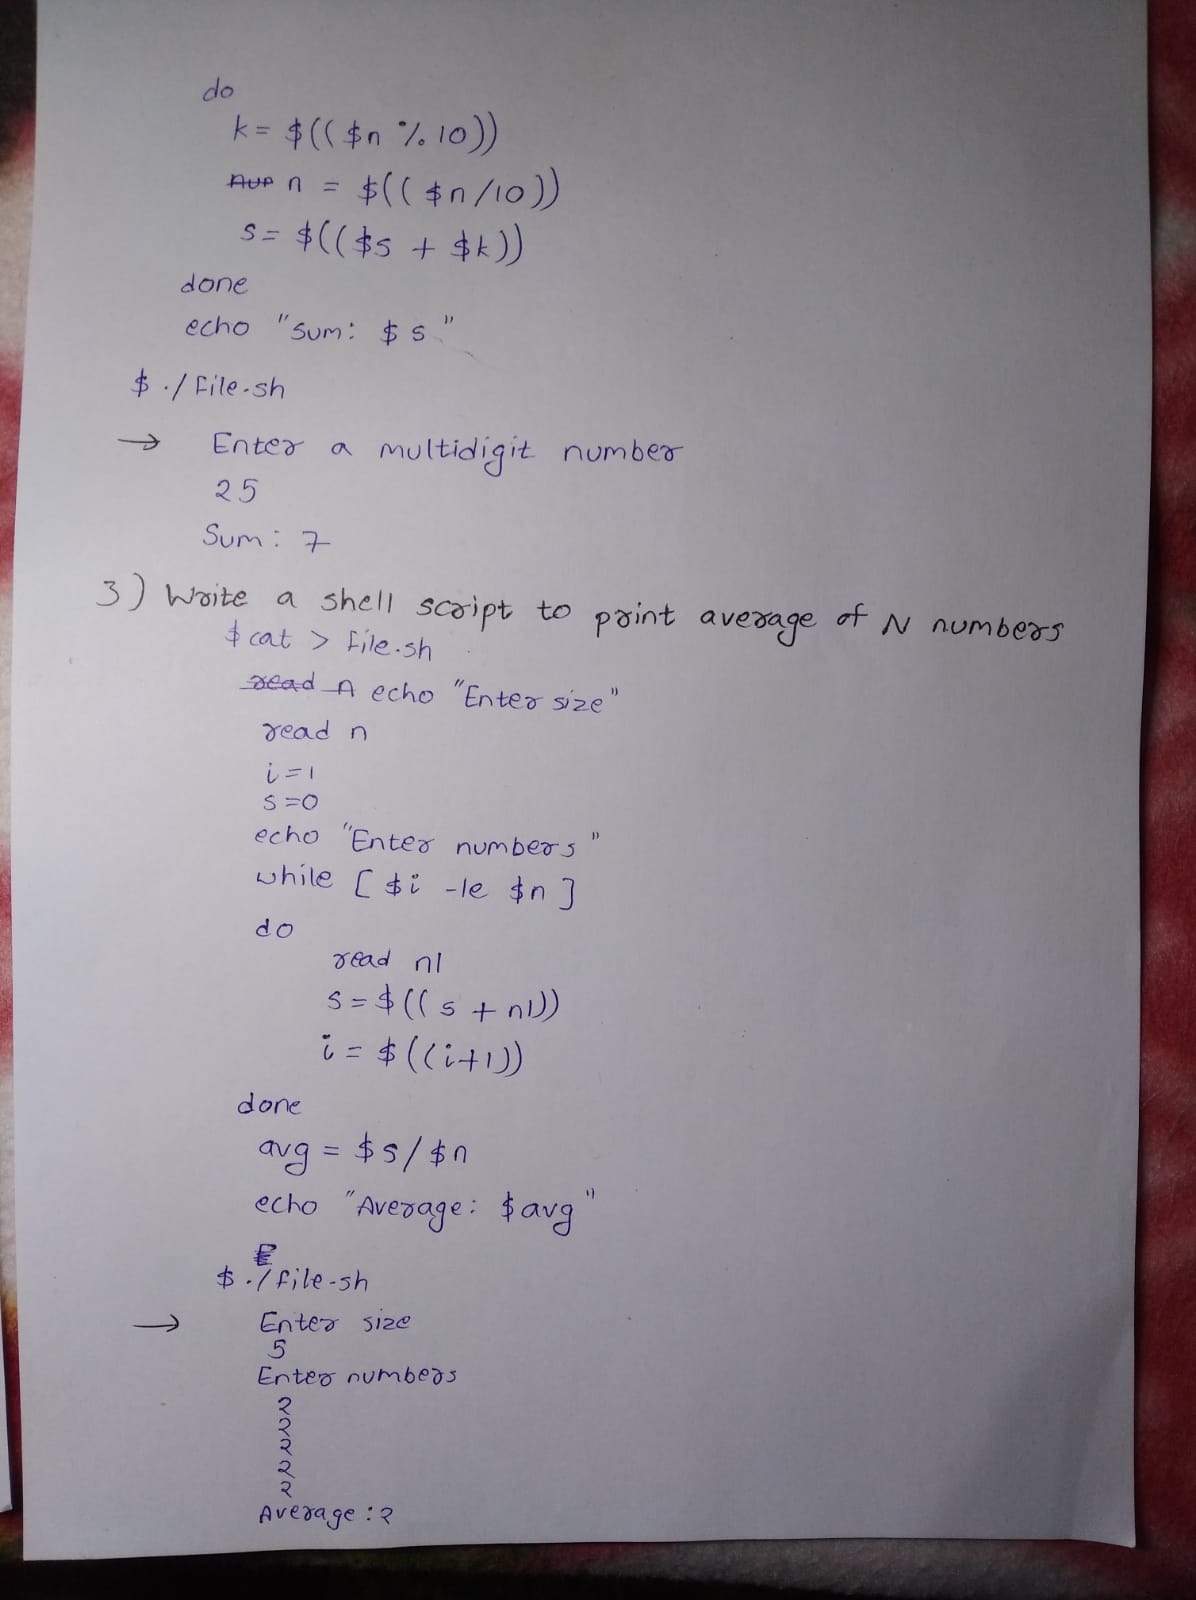 do
k = $(( $n % 10))
n = $(( $n/10))
s = $(($s + $k))
done
echo "Sum: $ s "
$ ./ file.sh
→ Enter a multidigit number
25
Sum : 7
3) Write a shell script to print average of N numbers
$ cat > file.sh
read A echo "Enter size"
read n
i = 1
s = 0
echo "Enter numbers"
while [ $i -le $n ]
do
read n1
s = $(( s + n1))
i = $((i+1))
done
avg = $s / $n
echo "Average: $avg"
$ ./ file.sh
→ Enter size
5
Enter numbers
2
2
2
2
2
Average : 2